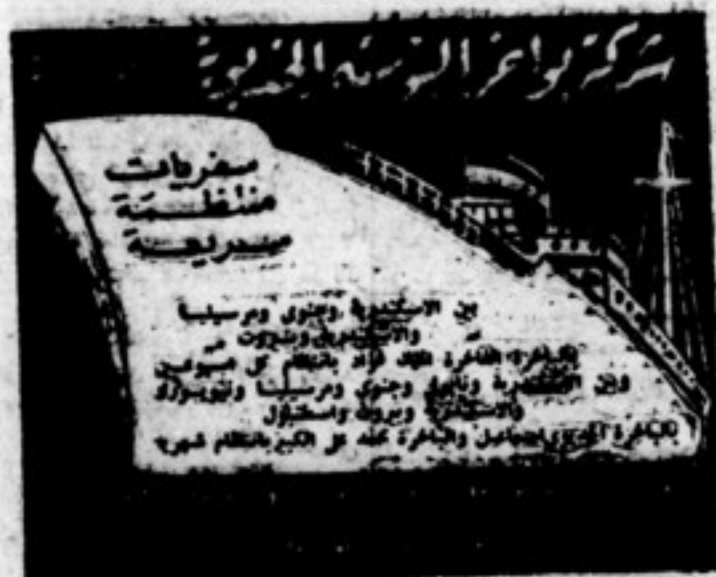 شركة بواخر البوستة الخديوية
سفريات
منتظمة
سريعة
بين الاسكندرية وجنوى ومرسيليا
والاسكندرية وبيروت
بالباخرة الفاخرة الملك فؤاد بانتظام كل اسبوعين
وبين الاسكندرية ونابولي وجنوى ومرسيليا ونيويورك
والاسكندرية وبيروت واستنبول
بالباخرة الخديوي إسماعيل والباخرة محمد علي الكبير بانتظام شهريا